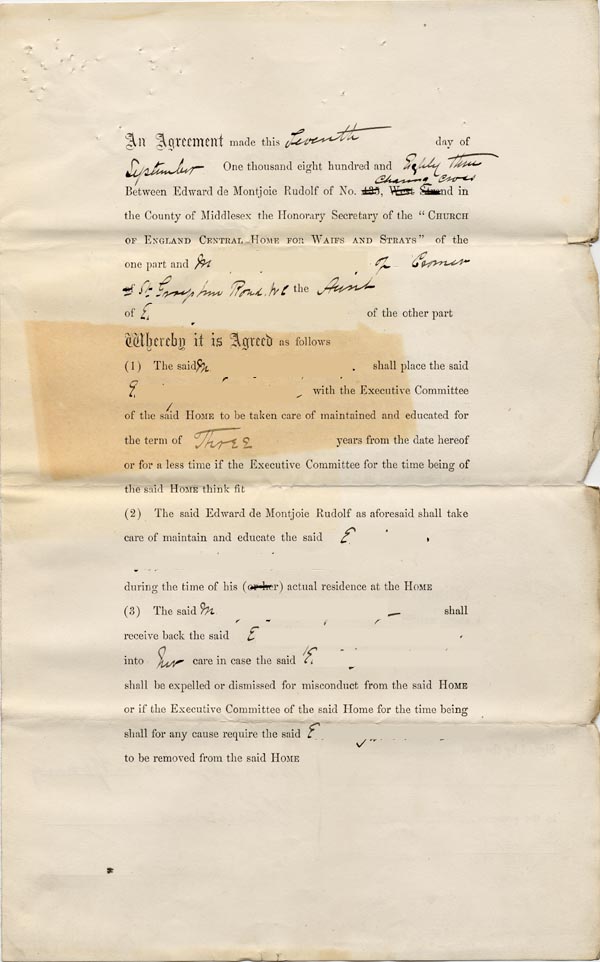 An Agreement made this Seventh day of
September One thousand eight hundred and Eighty three
Charing Cross
Between Edward de Montjoie Rudolf of No. in
the County of Middlesex the Honorary Secretary of the "CHURCH
OF ENGLAND CENTRAL HOME FOR WAIFS AND STRAYS" of the
one part and M of Corner
St Road. WC the Aunt
of E. of the other part
Whereby it is Agreed as follows
(1) The said M. shall place the said
E with the Executive Committee
of the said HOME to be taken care of maintained and educated for
the term of Three years from the date hereof
or for a less time if the Executive Committee for the time being of
the said HOME think fit
(2) The said Edward de Montjoie Rudolf as aforesaid shall take
care of maintain and educate the said E
during the time of his (or her) actual residence at the HOME
(3) The said M. shall
receive back the said E
into her care in case the said E.
shall be expelled or dismissed for misconduct from the said HOME
or if the Executive Committee of the said Home for the time being
shall for any cause require the said E
to be removed from the said HOME